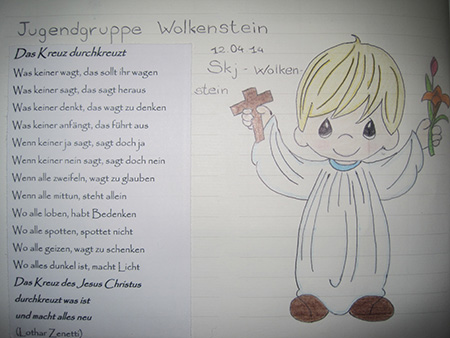 Jugendgruppe Wolkenstein
12.04.14
Skj - Wolken-
stein
Das Kreuz durchkreuzt
Was keiner wagt, das sollt ihr wagen
Was keiner sagt, das sagt heraus
Was keiner denkt, das wagt zu denken
Was keiner anfängt, das führt aus
Wenn keiner ja sagt, sagt doch ja
Wenn keiner nein sagt, sagt doch nein
Wenn alle zweifeln, wagt zu glauben
Wenn alle mittun, steht allein
Wo alle loben, habt Bedenken
Wo alle spotten, spottet nicht
Wo alle geizen, wagt zu schenken
Wo alles dunkel ist, macht Licht
Das Kreuz des Jesus Christus
durchkreuzt was ist
und macht alles neu
(Lothar Zenetti)